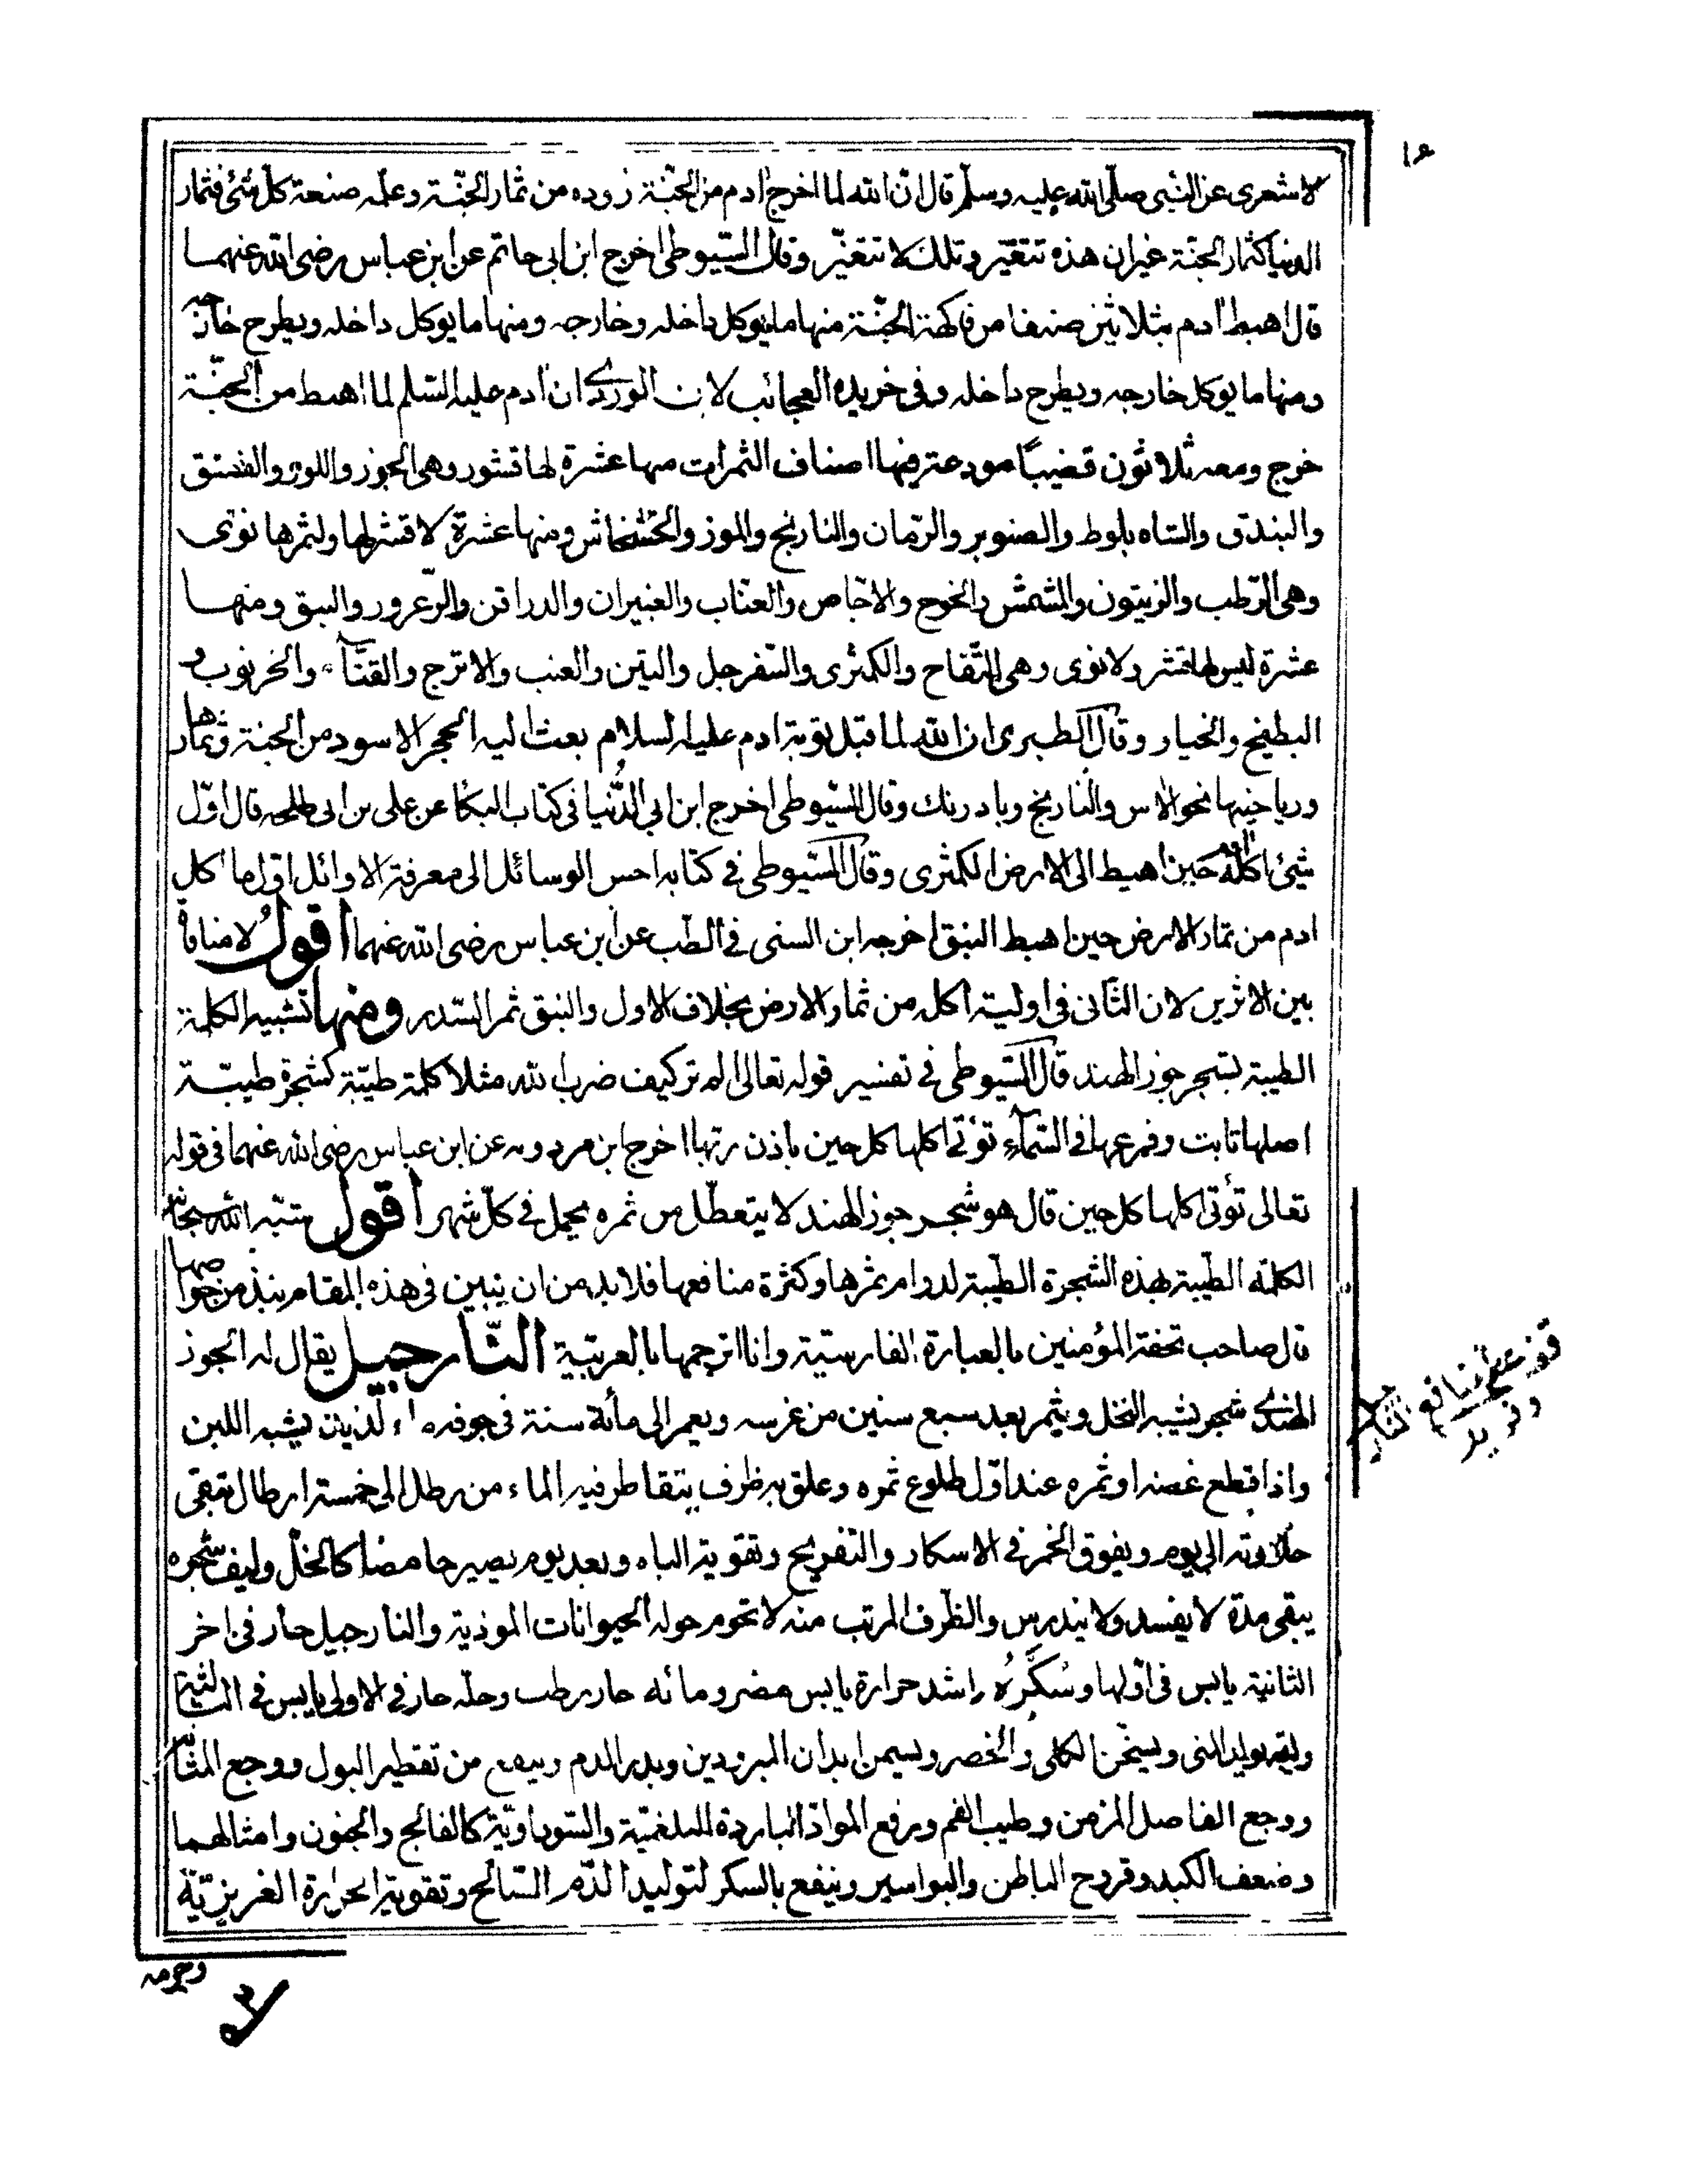 لاشعرى عن النبى صلّى الله عليه وسلّم قال انّ الله لما اخرج ادم من الجنّة زوده من ثمار الجنّة وعلّمه صنعة كلّ شئ فثمار
الدنيا كثمار الجنّة غيران هذه تتغيّر وتلك لا تتغيّر وقال السّيوطى اخرج ابن ابى حاتم عن ابن عباس رضى الله عنهما
قال اهبط ادم بثلاثين صنفا من فاكهة الجنّة منها ما يوكل داخله وخارجه ومنها ما يوكل داخله ويطرح خارجه
ومنها ما يوكل خارجه ويطرح داخله وفى خريدة العجائب لابن الوردى ان ادم عليه السّلم لما اهبط من الجنّة
خرج ومعه ثلاثون قضيبًا مودعة فيها اصناف الثمرات منها عشرة لها قشور وهى الجوز واللوز والفستق
والبندق والشاه بلوط والصنوبر والرّمان والنارنج والموز والخشخاش ومنها عشرة لا قشر لها ولثمرها نوى
وهى الرّطب والزيتون والمشمش والخوخ والاجّاص والعنّاب والغبيران والدراقن والزّعرور والنبق ومنها
عشرة ليس لها قشر ولا نوى وهى التّفاح والكمثرى والسّفرجل والتين والعنب والاترج والقثّآء والخرنوب و
البطيخ والخيار وقال الطبرى ان الله لما قبل توبة ادم عليه السلام بعث اليه الحجر الاسود من الجنة وثمارها
ورياحينها نحو الاس والنارنج وبادرنك وقال السّيوطى اخرج ابن ابى الدُّنيا فى كتاب البكا عن على بن ابى طلحه قال اوّل
شئ اكله حين اهبط الى الارض الكمثرى وقال السّيوطى فى كتابه احسن الوسائل الى معرفة الاوائل اوّل ما اكل
ادم من ثمار الارض حين اهبط النبق اخرجه ابن السنى فى الطب عن ابن عباس رضى الله عنهما اقول لا منافاة
بين الاثرين لان الثانى فى اولية اكله من ثمار الارض بخلاف الاول والنبق ثمر السّدر ومنها تشبيه الكلمة
الطيبة بشجر جوز الهند قال السّيوطى فى تفسير قوله تعالى الم تر كيف ضرب الله مثلا كلمة طيّبة كشجرة طيبّة
اصلها ثابت وفرعها فى السّمآء تؤتى اكلها كل حين باذن ربّها اخرج ابن مردويه عن ابن عباس رضى الله عنهما فى قوله
تعالى تؤتى اكلها كل حين قال هو شجر جوز الهند لا يتعطّل من ثمره يحمل فى كلّ شهر اقول شبّه الله سبحانه
الكلمة الطّيبة بهذه الشجرة الطّيبة لدوام ثمرها وكثرة منافعها فلا بد من ان نبين فى هذه المقام نبذ من خواصها
قال صاحب تحفة المؤمنين بالعبارة الفارسيّة وانا اترجمها بالعربيّة النّارجيل يقال له الجوز
الهندى شجر يشبه النخل ويثمر بعد سبع سنين من غرسه ويعمر الى مائة سنة فى جوفه ماء لذيذ يشبه اللبن
واذا قطع غصنه او ثمره عند اوّل طلوع ثمره وعلق به ظرف يتقاطر فيه الماء من رطل الى خمسة ارطال تبقى
حلاوته الى يوم ويفوق الخمر فى الاسكار والتفريح وتقوية الباه وبعد يوم يصير حامضا كالخلّ وليف شجره
يبقى مدة لا يفسد ولا يندرس والظّرف المرتب منه لا تحوم حوله الحيوانات الموذية والنارجيل حار فى اخر
الثانية يابس فى اوّلها وسُكَّرُه اشد حرارة يابس مضر ومائه حار رطب وخلّه حار فى الاولى يابس فى الثالثة
ويسخّن الكلى والخصر ويسمن ابدان المبرودين ويدر الدم وينفع من تقطير البول ووجع المثانة
ووجع المفاصل المزمن وطيب الفم ورفع الموادّ الباردة البلغمية والسّوداويّة كالفالج والجنون وامثالهما
وضعف الكبد وقروح الباطن والبواسير وينفع بالسكر لتوليد الدّم الصّالح وتقوية الحرارة الغريزيّة